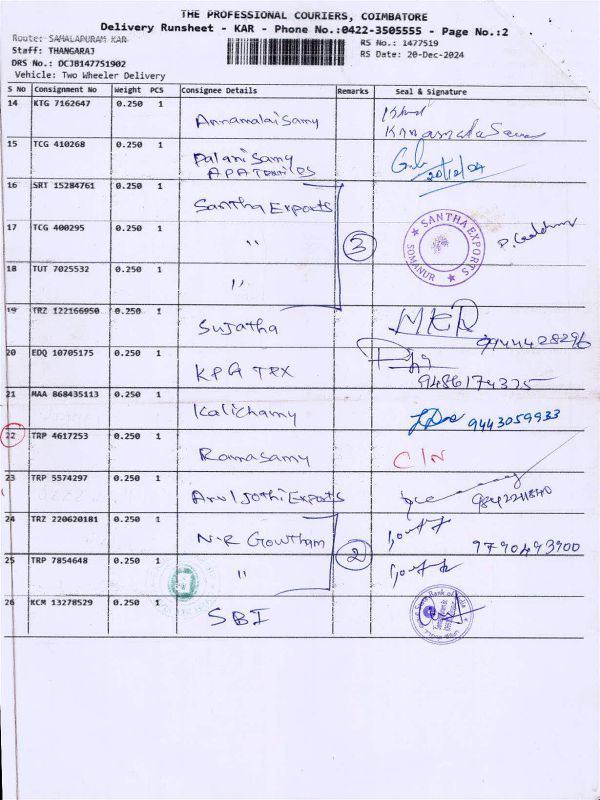 THE PROFESSIONAL COURIERS, COIMBATORE
Delivery Runsheet - KAR - Phone No.:0422-3505555 - Page No.:2
Route: SAMALAPURAM KAR
RS No.: 1477519
Staff: THANGARAJ
RS Date: 20-Dec-2024
DRS No.: DCJB147751902
Vehicle: Two Wheeler Delivery
S No Consignment No Weight PCS Consignee Details Remarks Seal & Signature
14 KTG 7162647 0.250 1 Annamalai Samy
15 TCG 410268 0.250 1 Palani Samy
20/12/24
16 SRT 15284761 0.250 1 Santha Exports
17 TCG 400295 0.250 1 " 3 SANTHA EXPORTS SOMANUR
18 TUT 7025532 0.250 1 "
19 TRZ 122166950 0.250 1 Sujatha 9944428296
20 EDQ 10705175 0.250 1 KPG TEX 9486174375
21 MAA 868435113 0.250 1 Kalichamy 9443059933
22 TRP 4617253 0.250 1 Ramasamy C/N
23 TRP 5574297 0.250 1 Arul Jothi Exports
24 TRZ 220620181 0.250 1 N.R Gowtham 9790493900
25 TRP 7854648 0.250 1 " 2
26 KCM 13278529 0.250 1 SBI